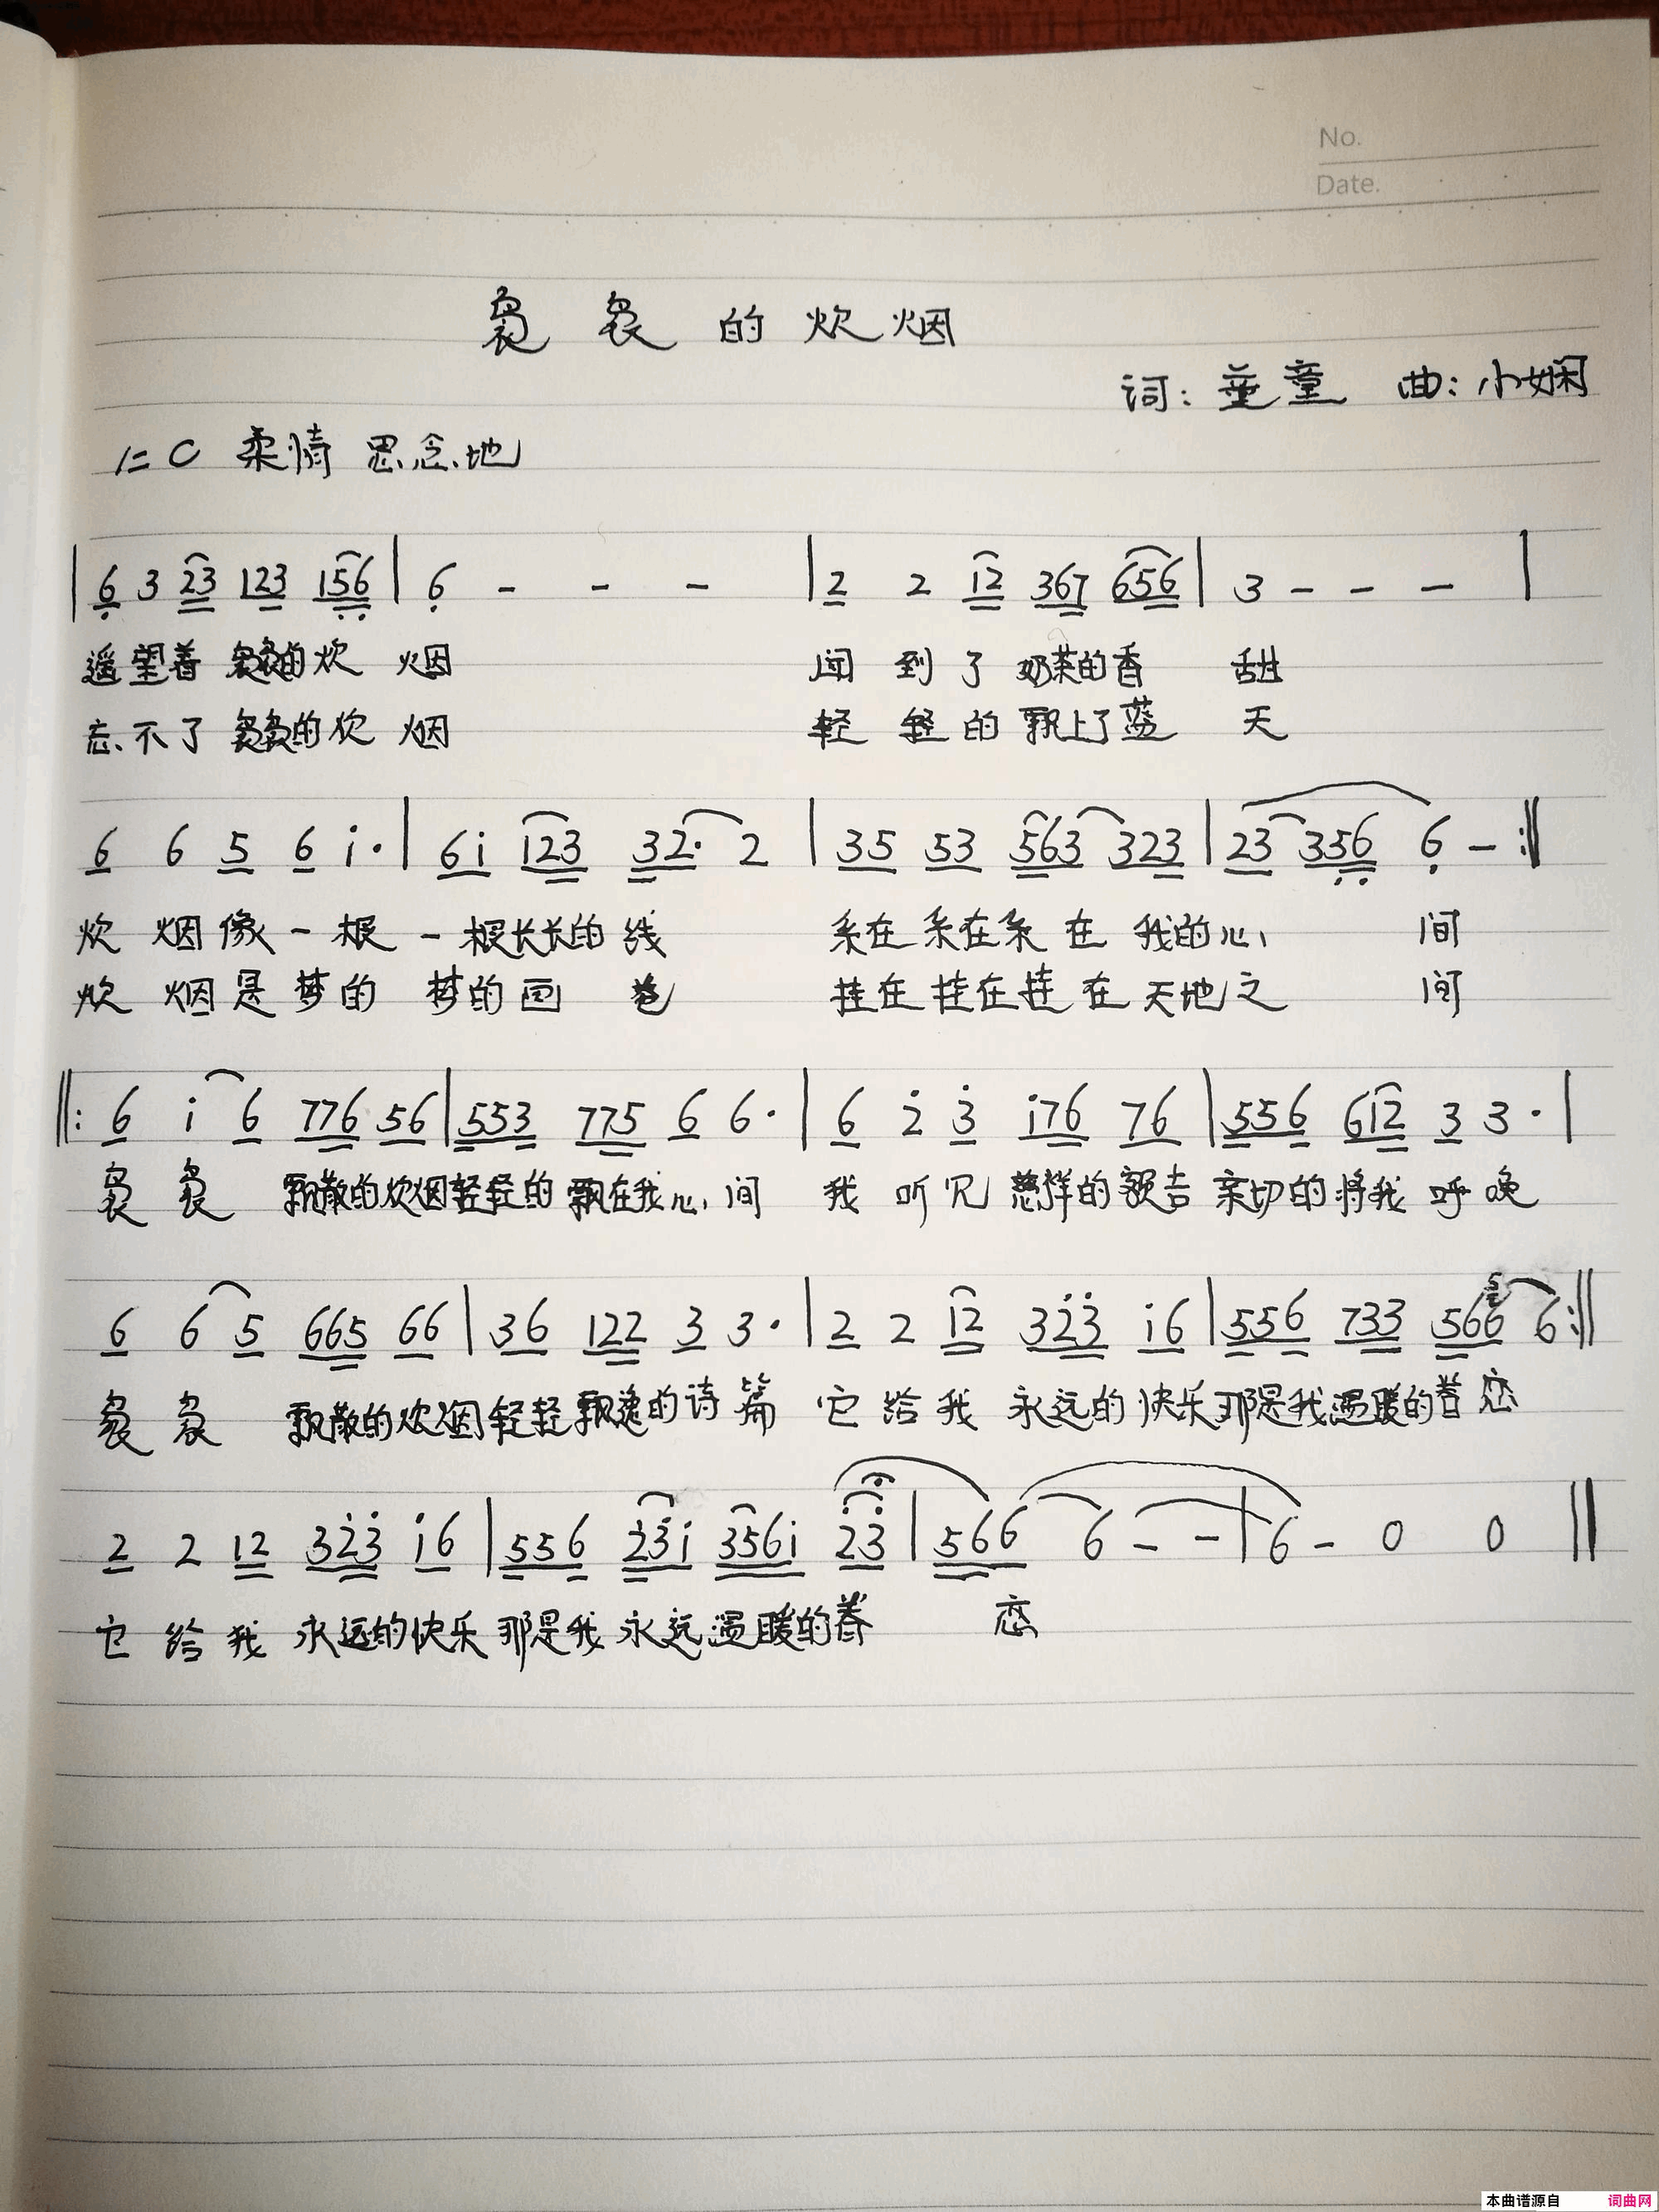 No.
Date.
袅袅的炊烟
词：董童 曲：小娴
1=C 柔情 思念地
|6 3 23 123 156|6 - - -|2 2 12 367 656|3 - - -|
遥望着 袅袅的炊 烟 闻到了 奶茶的香 甜
忘不了 袅袅的炊 烟 轻轻的 飘上了蓝 天
6 6 5 6 i·|6i 123 32· 2|35 53 563 323|23 356 6 - :||
炊烟像一根 一根长长的线 系在系在系在 我的心 间
炊烟是梦的 梦的画卷 挂在挂在挂在 天地之 间
||: 6 i 6 776 56|553 775 6 6·|6 2 3 i76 76|556 612 3 3·|
袅袅 飘散的炊烟轻轻的飘在我心间 我听见 慈祥的额吉 亲切的将我呼唤
6 6 5 665 66|36 122 3 3·|2 2 12 323 i6|556 733 566 6 :||
袅袅 飘散的炊烟轻轻飘逸的诗篇 它给我 永远的快乐那是我温暖的眷恋
2 2 12 323 i6|556 23i 356i 23|566 6 - -|6 - 0 0||
它给我 永远的快乐 那是我 永远温暖的眷 恋
本曲谱源自 词曲网